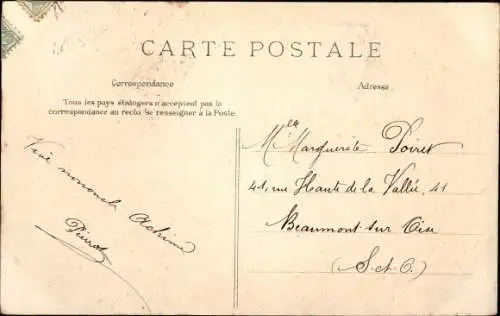 CARTE POSTALE
Correspondance
Adresse
Tous les pays étrangers n'acceptent pas la
correspondance au recto (Se renseigner à la Poste.
Mlle Marguerite Poiret
41, rue Haute de la Vallée, 41
Beaumont sur Oise
(S.et.O.)
Vive
Pierrot